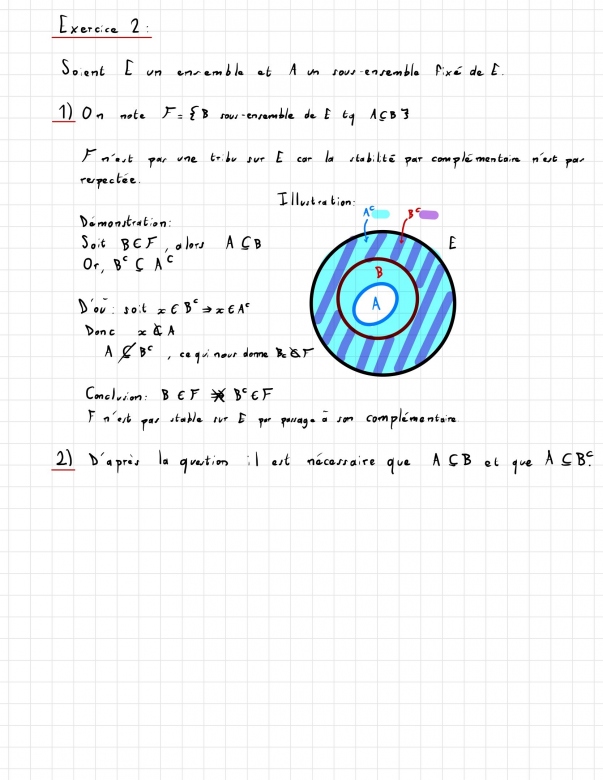 Exercice 2 :
Soient E un ensemble et A un sous-ensemble fixé de E.
1) On note F = { B sous-ensemble de E tq A ⊆ B }
F n'est pas une tribu sur E car la stabilité par complémentaire n'est pas
respectée.
Illustration:
Aᶜ
Bᶜ
E
B
A
Démonstration:
Soit B ∈ F, alors A ⊆ B
Or, Bᶜ ⊆ Aᶜ
D'où : soit x ∈ Bᶜ ⇒ x ∈ Aᶜ
Donc x ∉ A
A ⊈ Bᶜ, ce qui nous donne Bᶜ ∉ F
Conclusion: B ∈ F ⇏ Bᶜ ∈ F
F n'est pas stable sur E par passage à son complémentaire
2) D'après la question il est nécessaire que A ⊆ B et que A ⊆ Bᶜ.